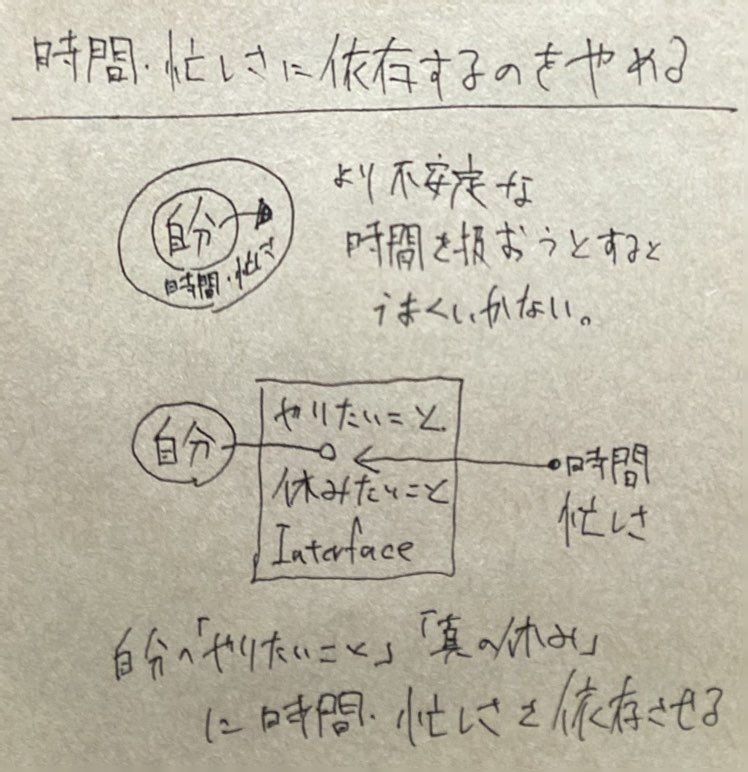 時間・忙しさに依存するのをやめる
自分
時間・忙しさ
より不安定な
時間を扱おうとすると
うまくいかない。
自分
やりたいこと
休みたいこと
Interface
時間
忙しさ
自分の「やりたいこと」「真の休み」
に時間・忙しさを依存させる